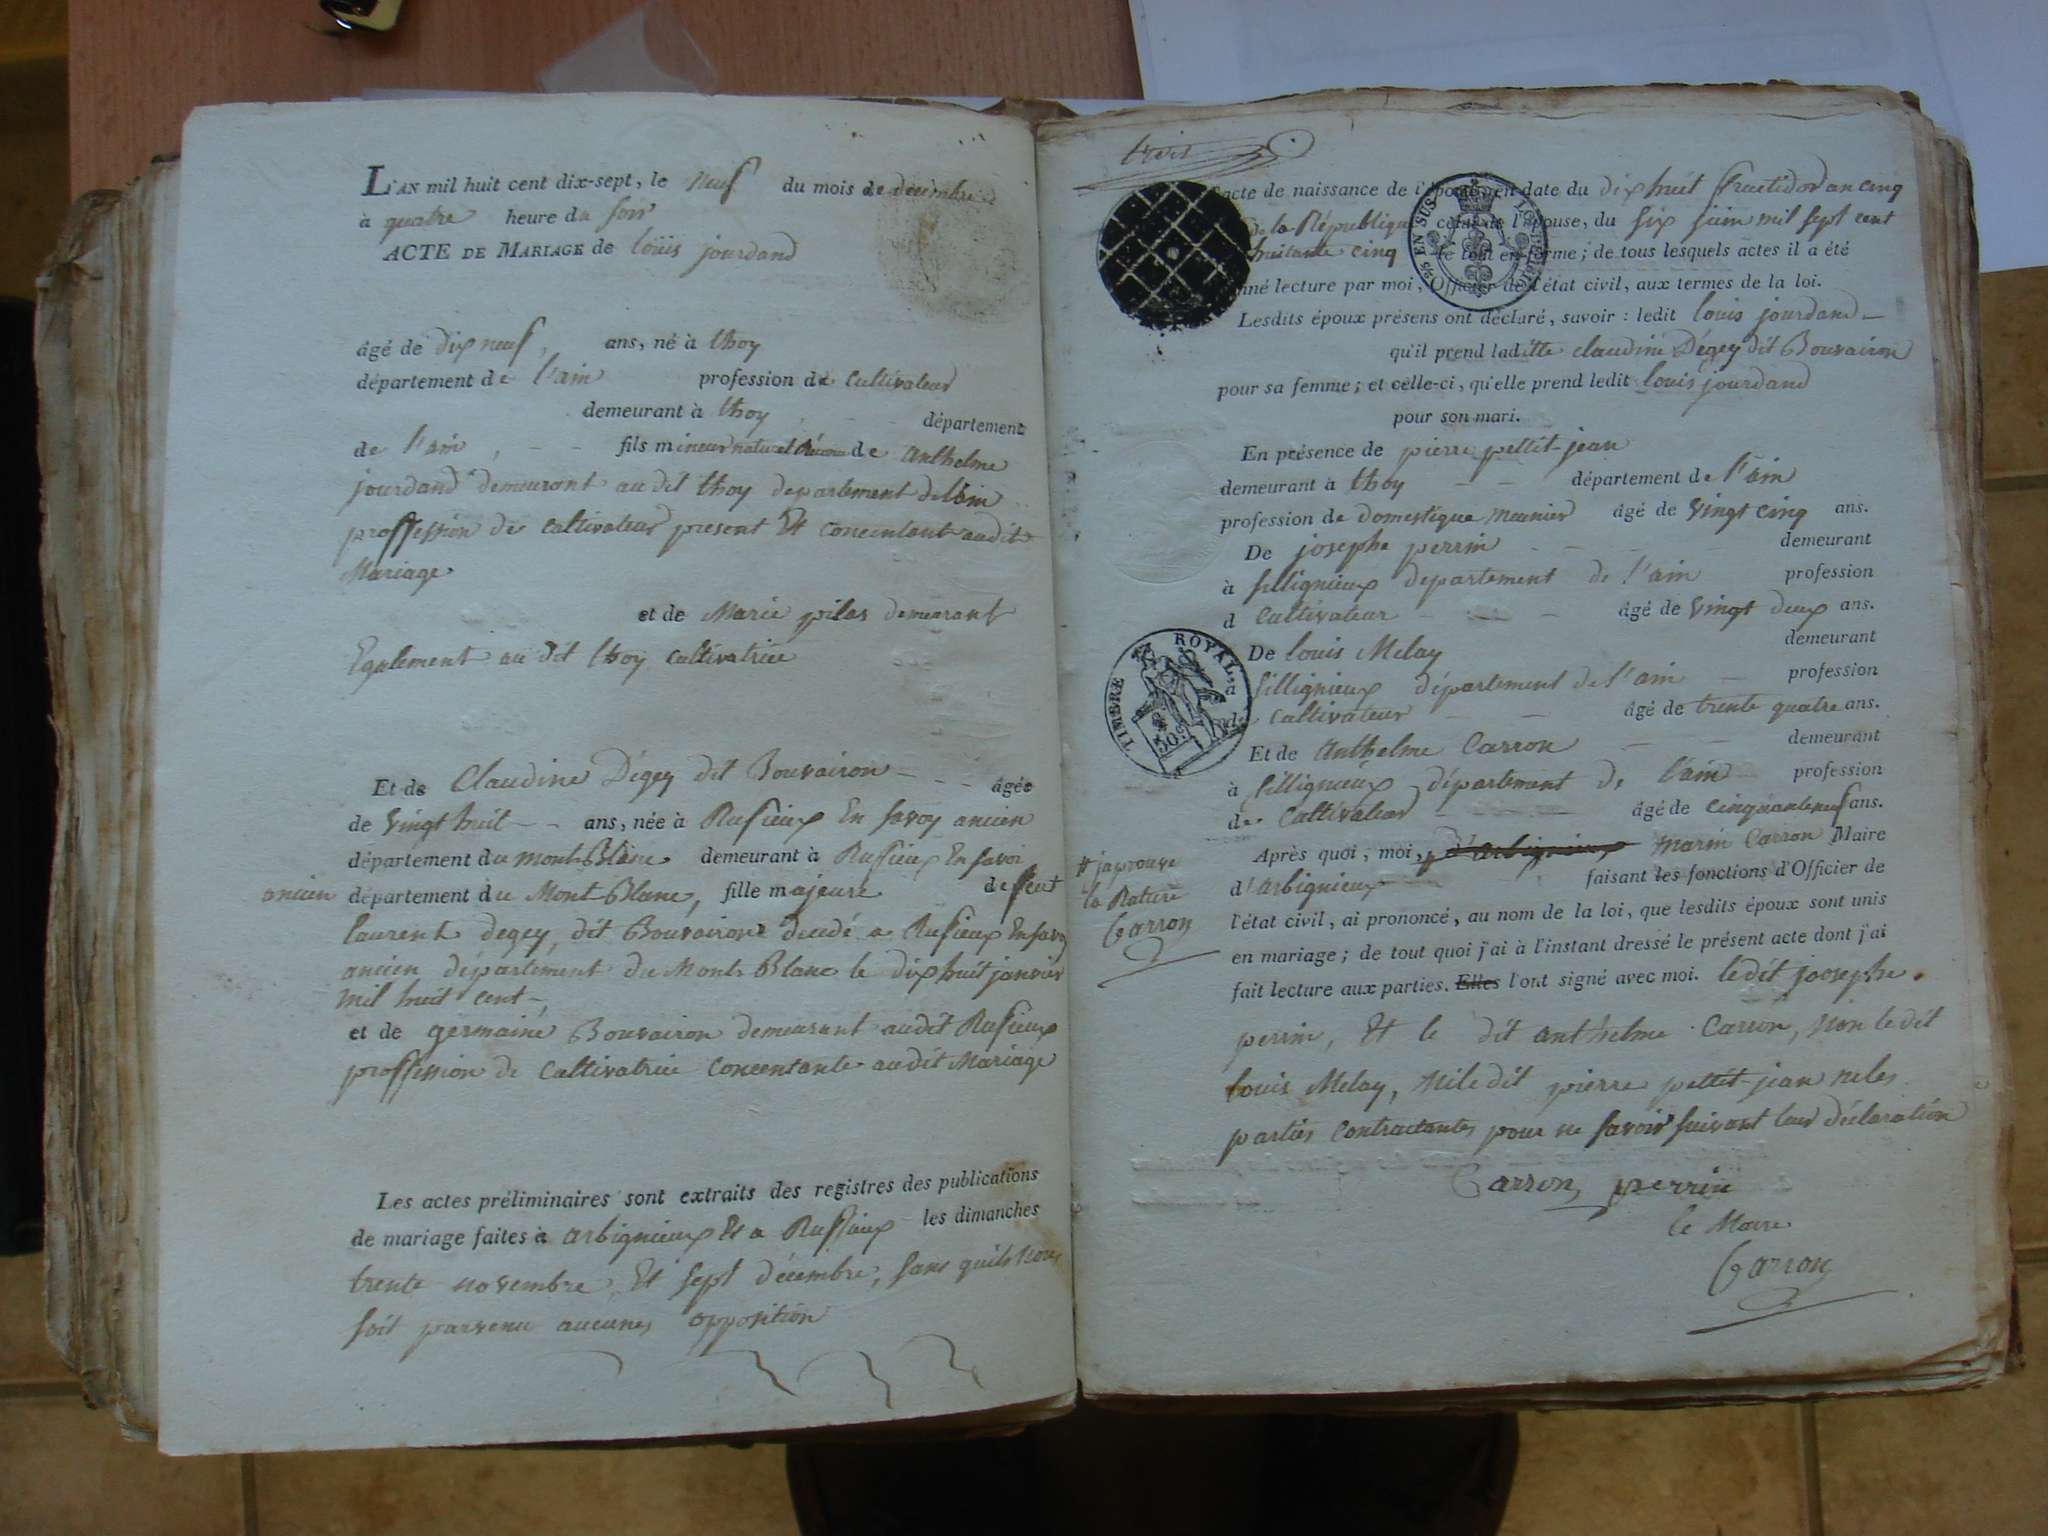 L'AN mil huit cent dix-sept, le neuf du mois de decembre
à quatre heure du soir
ACTE DE MARIAGE de loüis jourdand
âgé de dix neuf, ans, né à thoy
département de l'ain profession de cultivateur
demeurant à thoy département
de l'ain, fils mineur naturel de Anthelme
jourdand demeurant au dit thoy departement de l'ain
proffession de cultivateur present Et concentant audit
Mariage
et de Marie pilas demeurant
Egalement au dit thoy cultivatrice
Et de Claudine Dégey dit Bouvairon âgée
de vingt huit ans, née à Rufieux En savoy ancien
département du mont Blanc demeurant à Rufieux En savoi
ancien département du Mont Blanc, fille majeure de feut
laurent degey, dit Bouvairon décédé a Rufieux En savoy
ancien département du Mont Blanc le dix huit janvier
mil huit cent
et de germaine Bouvairon demeurant audit Rufieux
proffession de Cultivatrice concentante audit Mariage
Les actes préliminaires sont extraits des registres des publications
de mariage faites à arbignieux Et a Ruffieux les dimanches
trente novembre Et sept décembre, sans quils nous
soit parvenu aucunes opposition
trois
l'acte de naissance de l'époux en date du dix huit fructidor an cinq
de la République celui de l'épouse, du six juin mil sept cent
huitante cinq le tout en forme; de tous lesquels actes il a été
donné lecture par moi, Officier de l'état civil, aux termes de la loi.
Lesdits époux présens ont déclaré, savoir : ledit louis jourdand
qu'il prend laditte claudine Dégey dit Bouvairon
pour sa femme; et celle-ci, qu'elle prend ledit louis jourdand
pour son mari.
En présence de pierre pettit-jean
demeurant à thoy département de l'ain
profession de domestique meunier âgé de vingt cinq ans.
De josephe perrin demeurant
à sillignieux departement de l'ain profession
d cultivateur âgé de vingt deux ans.
De louis Melay demeurant
sillignieux département de l'ain profession
de cultivateur âgé de trente quatre ans.
Et de Anthelme Carron demeurant
à sillignieux département de l'ain profession
de Cultivateur âgé de cinquante neuf ans.
Après quoi, moi, d'arbignieux marin Carron Maire
d'Arbignieux faisant les fonctions d'Officier de
l'état civil, ai prononcé, au nom de la loi, que lesdits époux sont unis
en mariage; de tout quoi j'ai à l'instant dressé le présent acte dont j'ai
fait lecture aux parties. Elles l'ont signé avec moi. ledit joosephe
perrin, Et le dit anthelme Carron, non le dit
louis Melay, ni le dit pierre pettit-jean ni les
parties contractantes pour ne savoir suivant leur déclaration
Carron perrin
le Maire
Carron
# japrouve
la Rature
Carron
25 EN SUS
TIMBRE ROYAL
50c